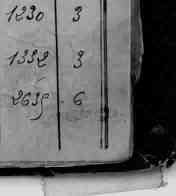 1230 3
1332 3
2635 6